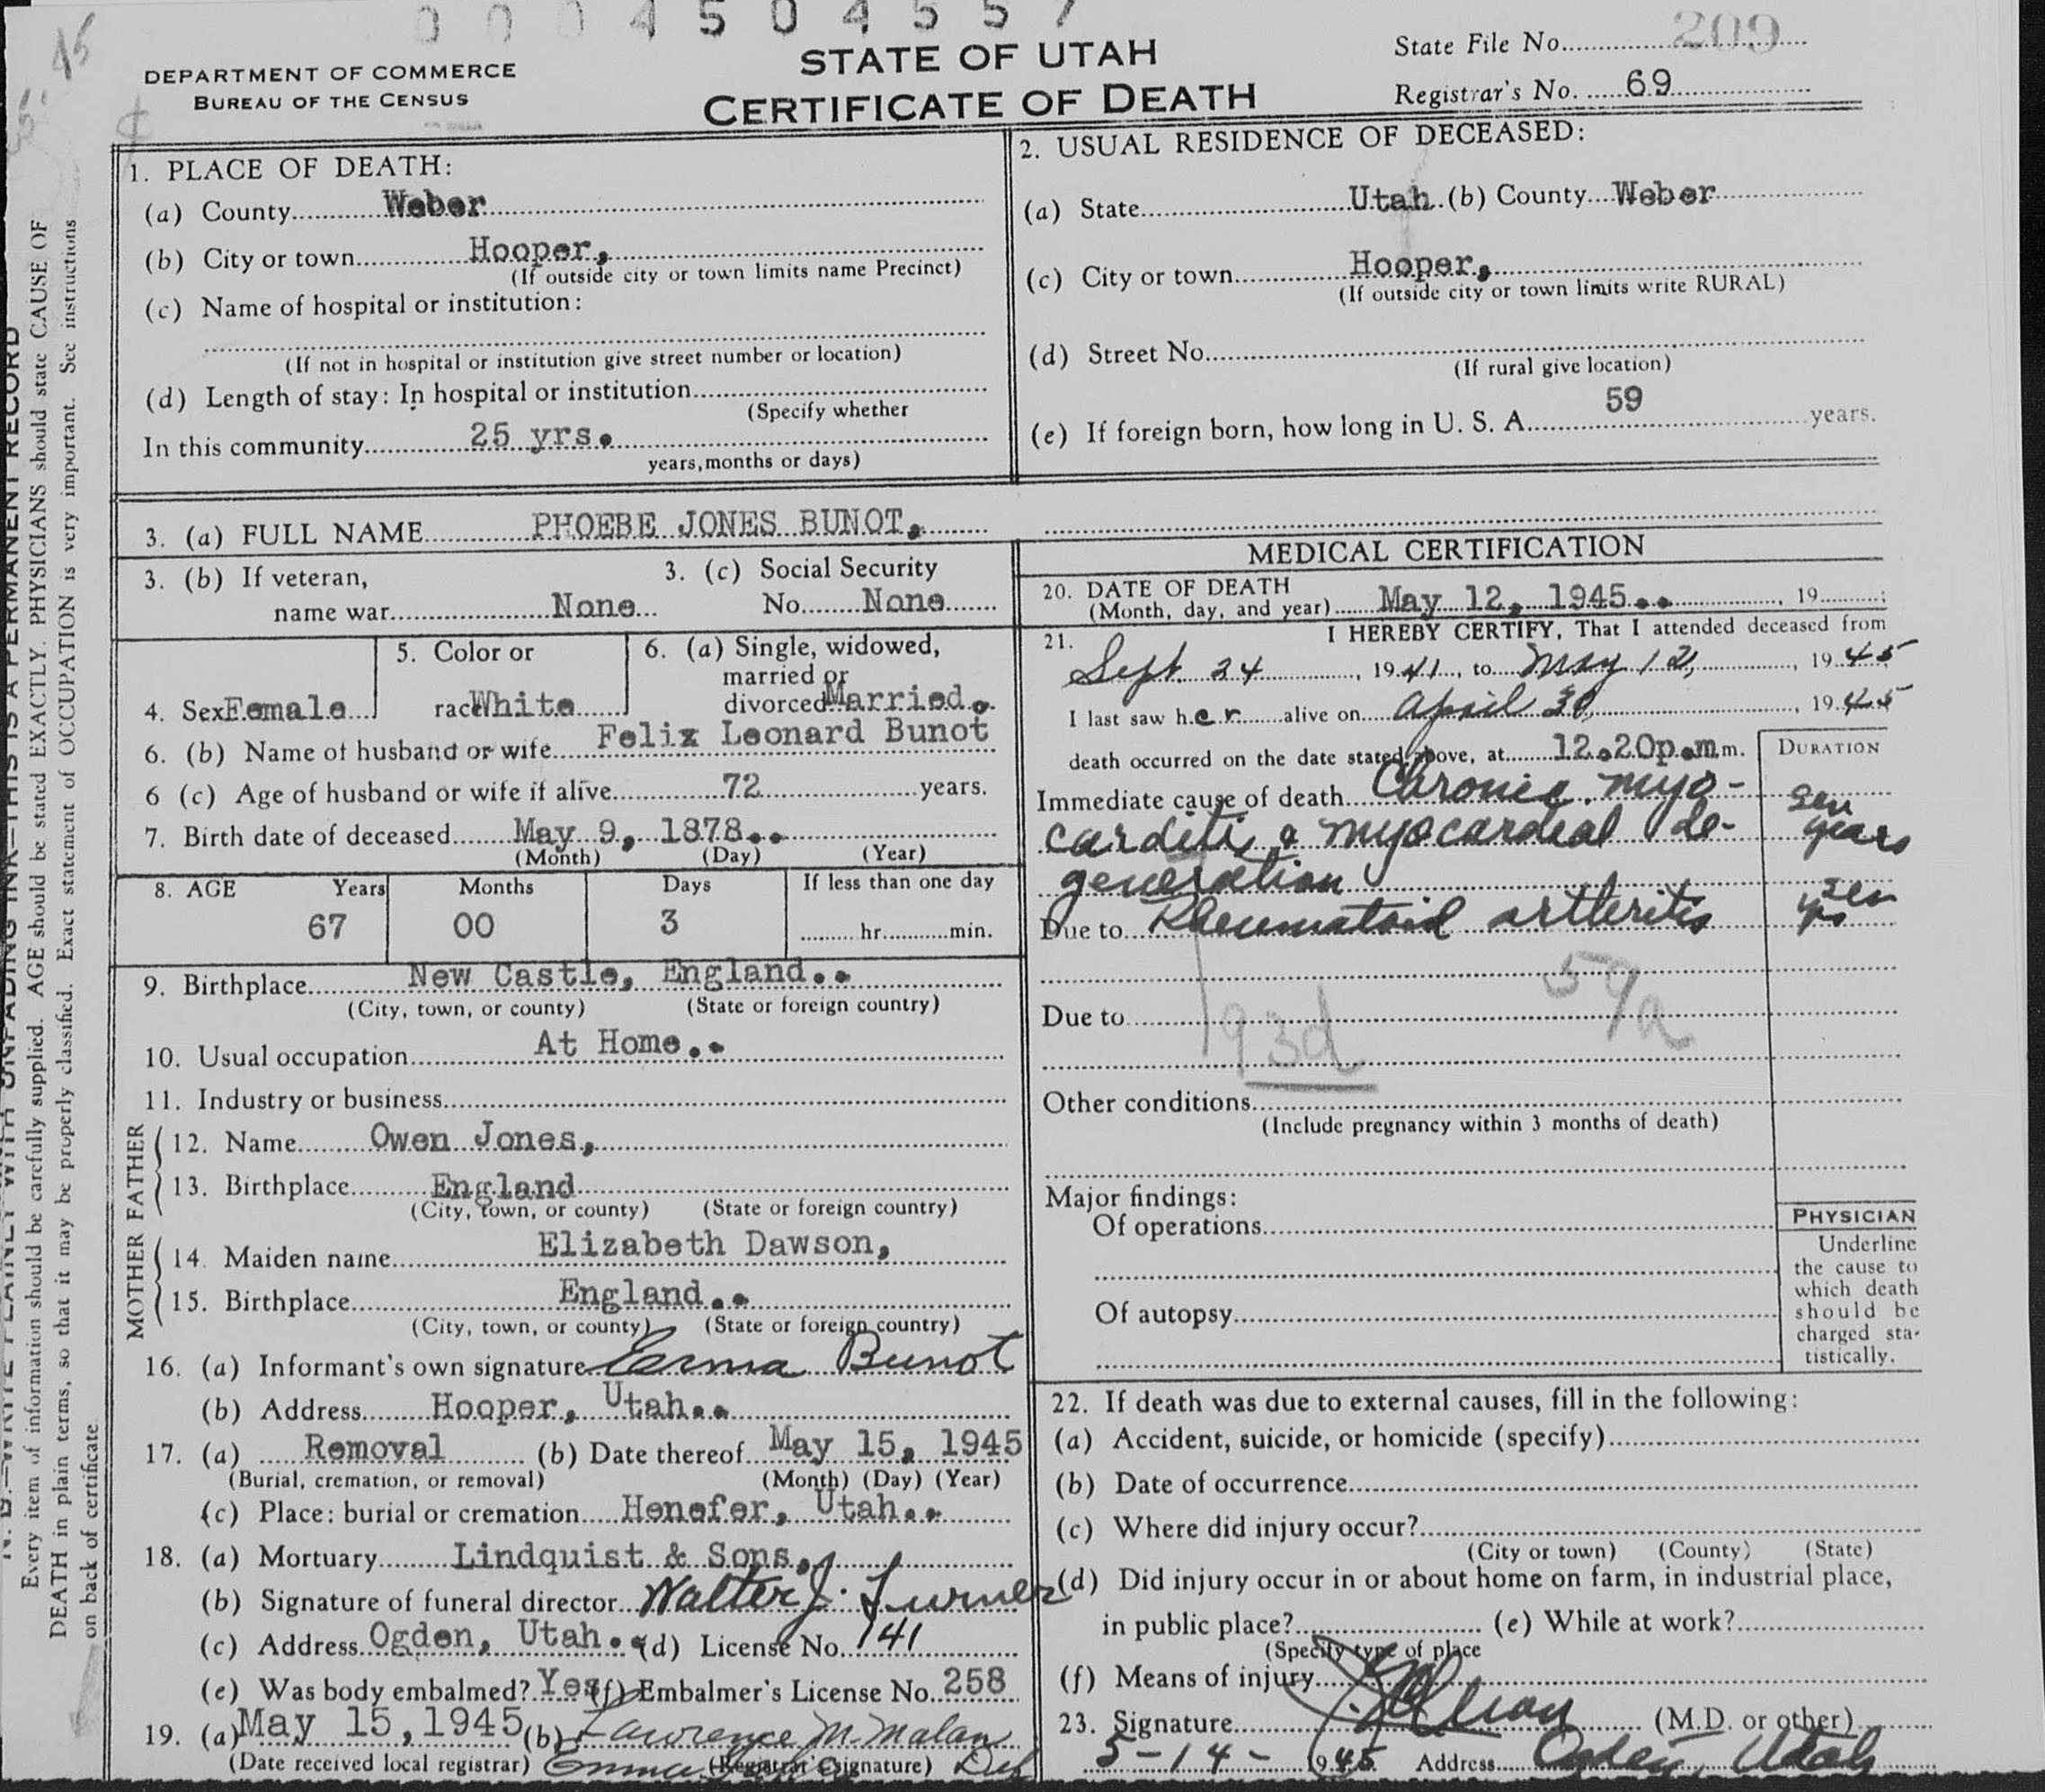 0 0 0 4 5 0 4 5 5 7
209
DEPARTMENT OF COMMERCE
BUREAU OF THE CENSUS
STATE OF UTAH
CERTIFICATE OF DEATH
State File No.
Registrar's No. 69
1. PLACE OF DEATH:
(a) County Weber
(b) City or town Hooper,
(If outside city or town limits name Precinct)
(c) Name of hospital or institution:
(If not in hospital or institution give street number or location)
(d) Length of stay: In hospital or institution
(Specify whether
In this community 25 yrs.
years, months or days)
2. USUAL RESIDENCE OF DECEASED:
(a) State Utah (b) County Weber
(c) City or town Hooper,
(If outside city or town limits write RURAL)
(d) Street No.
(If rural give location)
59
(e) If foreign born, how long in U. S. A. years.
3. (a) FULL NAME PHOEBE JONES BUNOT.
3. (b) If veteran,
name war None
3. (c) Social Security
No. None
4. Sex Female
5. Color or
race White
6. (a) Single, widowed,
married or
divorced Married.
6. (b) Name of husband or wife Felix Leonard Bunot
6 (c) Age of husband or wife if alive 72 years.
7. Birth date of deceased May 9, 1878..
(Month) (Day) (Year)
8. AGE Years Months Days If less than one day
67 00 3 hr. min.
9. Birthplace New Castle, England..
(City, town, or county) (State or foreign country)
10. Usual occupation At Home..
11. Industry or business
FATHER
12. Name Owen Jones,
13. Birthplace England
(City, town, or county) (State or foreign country)
MOTHER
14. Maiden name Elizabeth Dawson,
15. Birthplace England..
(City, town, or county) (State or foreign country)
16. (a) Informant's own signature Erma Bunot
(b) Address Hooper, Utah..
17. (a) Removal (b) Date thereof May 15, 1945
(Burial, cremation, or removal) (Month) (Day) (Year)
(c) Place: burial or cremation Henefer, Utah..
18. (a) Mortuary Lindquist & Sons,
(b) Signature of funeral director Walter J. Turner
(c) Address Ogden, Utah. (d) License No. 141
(e) Was body embalmed? Yes (f) Embalmer's License No. 258
19. (a) May 15, 1945 (b) Lawrence M. Malan
(Date received local registrar) (Registrar's signature)
Emma Dep
MEDICAL CERTIFICATION
20. DATE OF DEATH
(Month, day, and year) May 12, 1945.. , 19 ;
21. I HEREBY CERTIFY, That I attended deceased from
Sept. 24 , 1941, to May 12, , 1945
I last saw her alive on April 30, , 1945
death occurred on the date stated above, at 12.20p.m m.
DURATION
Immediate cause of death Chronic myo-
carditis & myocardial de-
generation
sev
years
Due to Rheumatoid arthritis
sev
yrs
59a
Due to
93d
Other conditions
(Include pregnancy within 3 months of death)
Major findings:
Of operations
Of autopsy
PHYSICIAN
Underline
the cause to
which death
should be
charged sta-
tistically.
22. If death was due to external causes, fill in the following:
(a) Accident, suicide, or homicide (specify)
(b) Date of occurrence
(c) Where did injury occur?
(City or town) (County) (State)
(d) Did injury occur in or about home on farm, in industrial place,
in public place? (e) While at work?
(Specify type of place
(f) Means of injury
23. Signature (M.D. or other)
5-14- 1945 Address Ogden, Utah
N. B.—WRITE PLAINLY WITH UNFADING INK—THIS IS A PERMANENT RECORD
Every item of information should be carefully supplied. AGE should be stated EXACTLY. PHYSICIANS should state CAUSE OF
DEATH in plain terms, so that it may be properly classified. Exact statement of OCCUPATION is very important. See instructions
on back of certificate